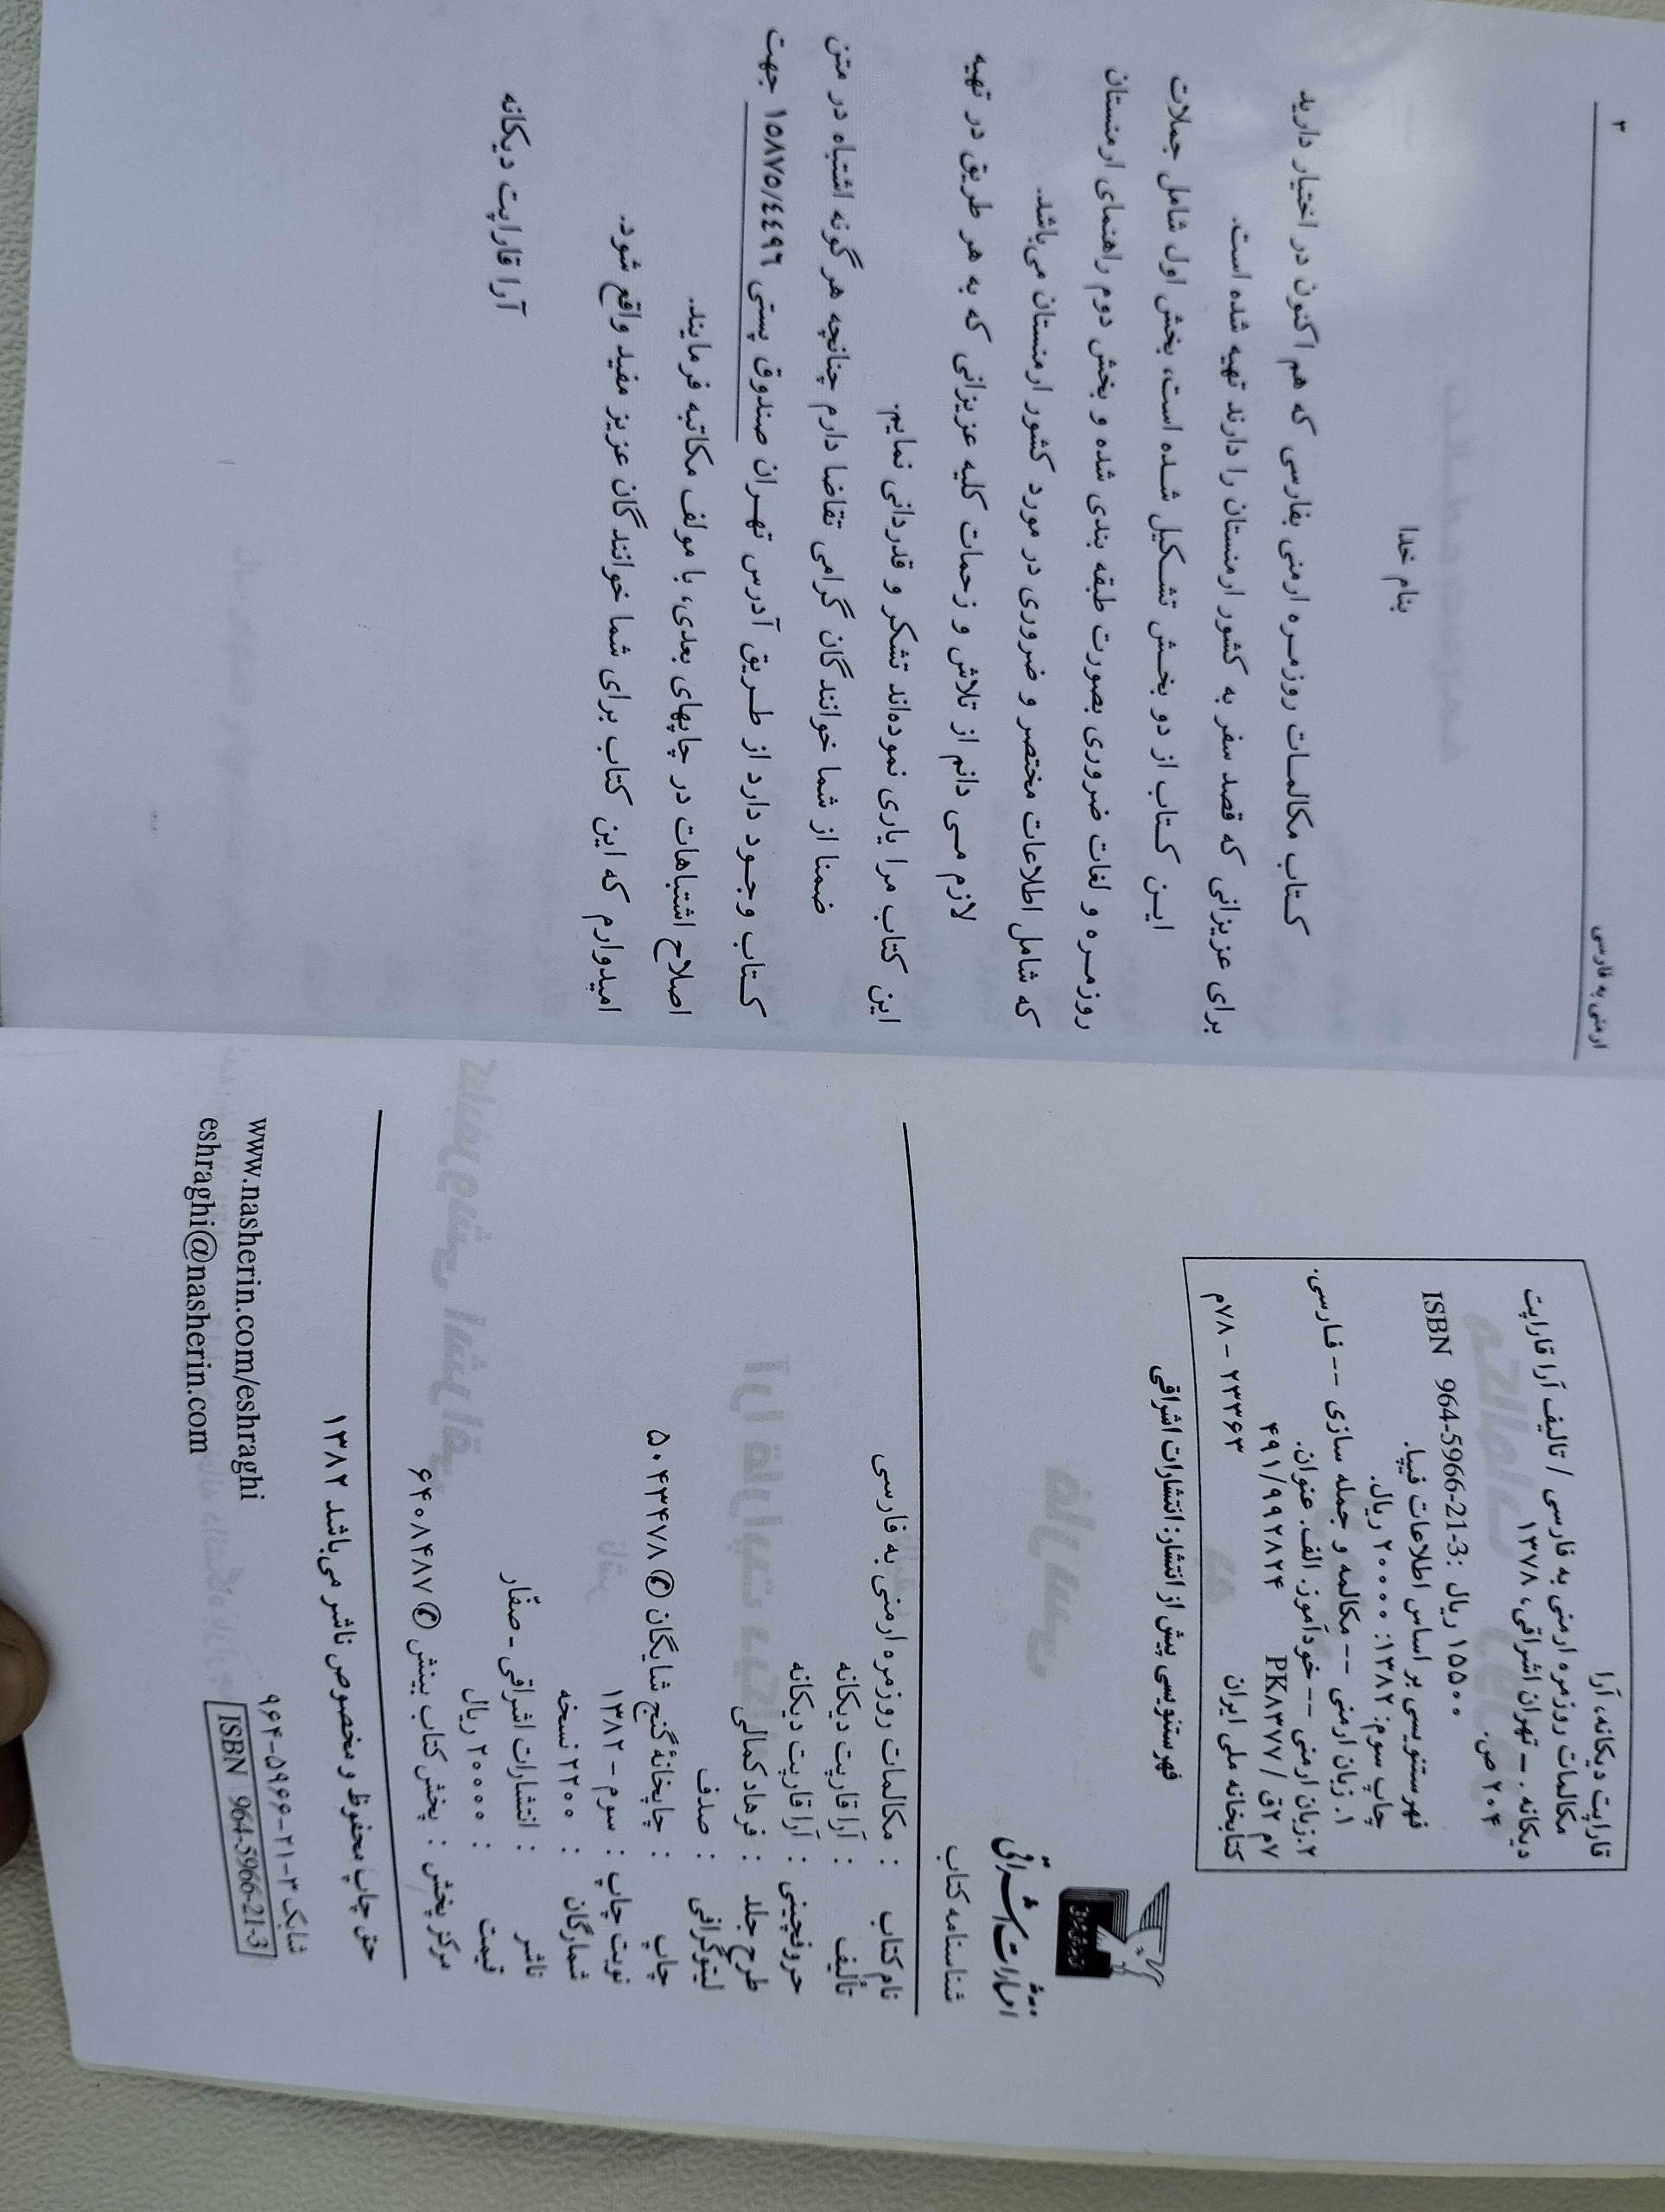 قاراپت دیکانه، آرا
مکالمات روزمره ارمنی به فارسی / تالیف آرا قاراپت
دیکانه. – تهران اشراقی، ۱۳۷۸
۲۰۴ ص.
ISBN 964-5966-21-3: ۱۵۵۰۰ ریال
فهرستنویسی بر اساس اطلاعات فیپا.
چاپ سوم: ۱۳۸۲: ۲۰۰۰۰ ریال.
۱. زبان ارمنی -- مکالمه و جمله سازی -- فارسی.
۲.زبان ارمنی -- خودآموز. الف. عنوان.
۷م ۲ق / PK۸۳۷۷ ۴۹۱/۹۹۲۸۲۴
کتابخانه ملی ایران ۲۳۳۶۳ – ۷۸م
فهرستنویسی پیش از انتشار: انتشارات اشراقی
انتشارات اشراقی
شناسنامه کتاب
نام کتاب : مکالمات روزمره ارمنی به فارسی
تألیف : آرا قاراپت دیکانه
حروفچینی : آرا قاراپت دیکانه
طرح جلد : فرهاد کمالی
لیتوگرافی : صدف
چاپ : چاپخانهٔ گنج شایگان ✆ ۵۰۴۳۴۷۸
نوبت چاپ : سوم – ۱۳۸۲
شمارگان : ۲۲۰۰ نسخه
ناشر : انتشارات اشراقی - صفّار
قیمت : ۲۰۰۰۰ ریال
مرکز پخش : پخش کتاب بینش ✆ ۶۴۰۸۴۸۷
حق چاپ محفوظ و مخصوص ناشر می‌باشد ۱۳۸۲
شابک ۳-۲۱-۵۹۶۶-۹۶۴
ISBN 964-5966-21-3
www.nasherin.com/eshraghi
eshraghi@nasherin.com
ارمنی به فارسی
۳
بنام خدا
کتاب مکالمات روزمره ارمنی بفارسی که هم اکنون در اختیار دارید
برای عزیزانی که قصد سفر به کشور ارمنستان را دارند تهیه شده است.
این کتاب از دو بخش تشکیل شده است، بخش اول شامل جملات
روزمره و لغات ضروری بصورت طبقه بندی شده و بخش دوم راهنمای ارمنستان
که شامل اطلاعات مختصر و ضروری در مورد کشور ارمنستان می‌باشد.
لازم می دانم از تلاش و زحمات کلیه عزیزانی که به هر طریق در تهیه
این کتاب مرا یاری نموده‌اند تشکر و قدردانی نمایم.
ضمنا از شما خوانندگان گرامی تقاضا دارم چنانچه هر گونه اشتباه در متن
کتاب وجود دارد از طریق آدرس تهران صندوق پستی ۱۵۸۷۵/٤٤۹٦ جهت
اصلاح اشتباهات در چاپهای بعدی، با مولف مکاتبه فرمایند.
امیدوارم که این کتاب برای شما خوانندگان عزیز مفید واقع شود.
آرا قاراپت دیکانه